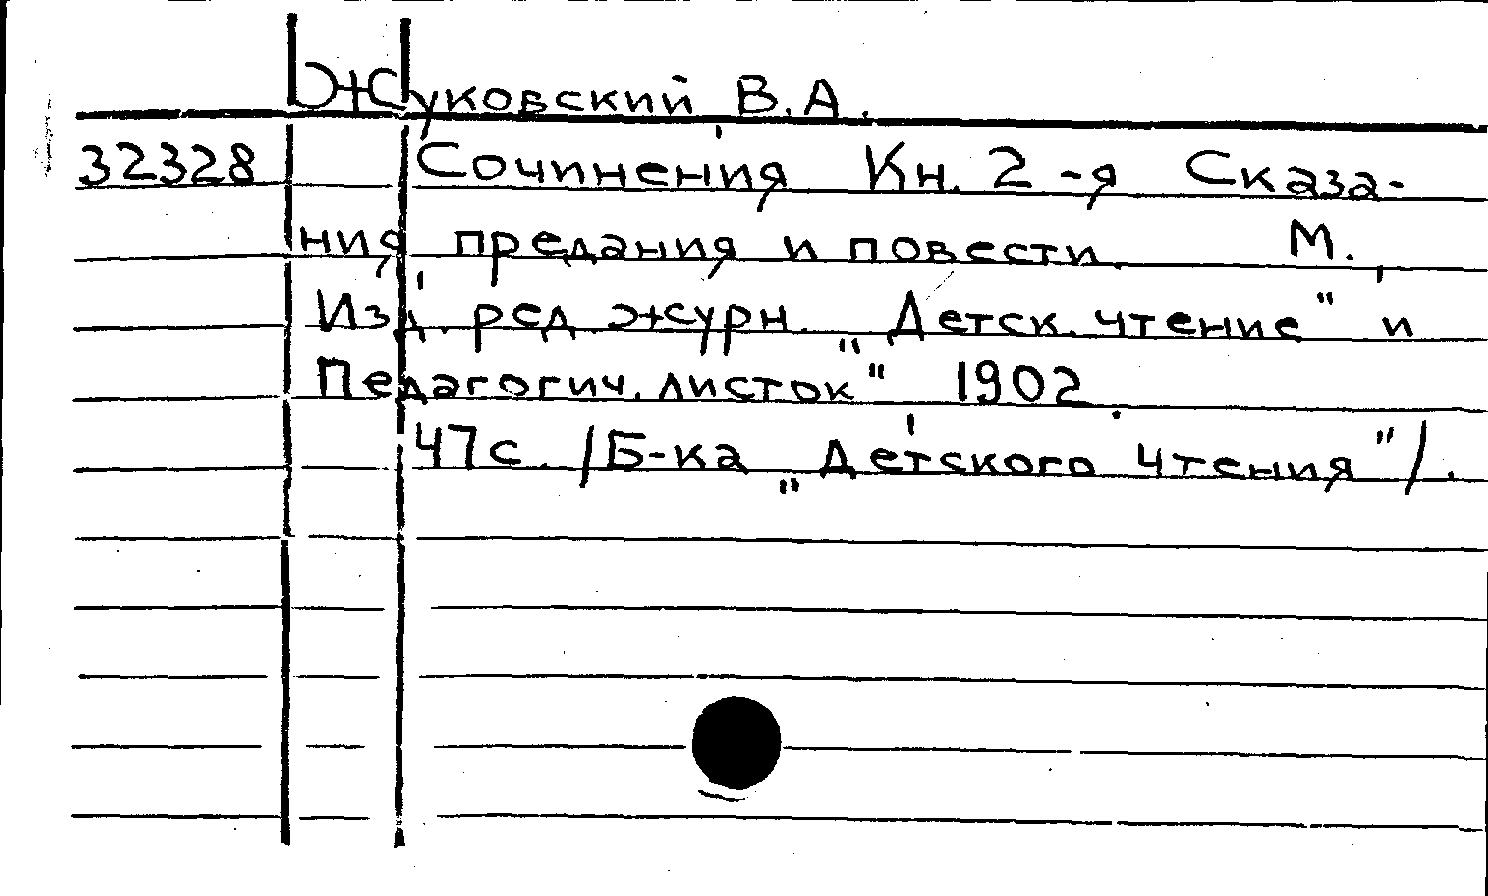 Жуковский В.А.
32328 Сочинения Кн. 2-я Сказа-
ния, предания и повести. М.,
Изд. ред. журн. „Детск. чтение" и
„Педагогич. листок" 1902.
47с. /Б-ка „Детского чтения"/.